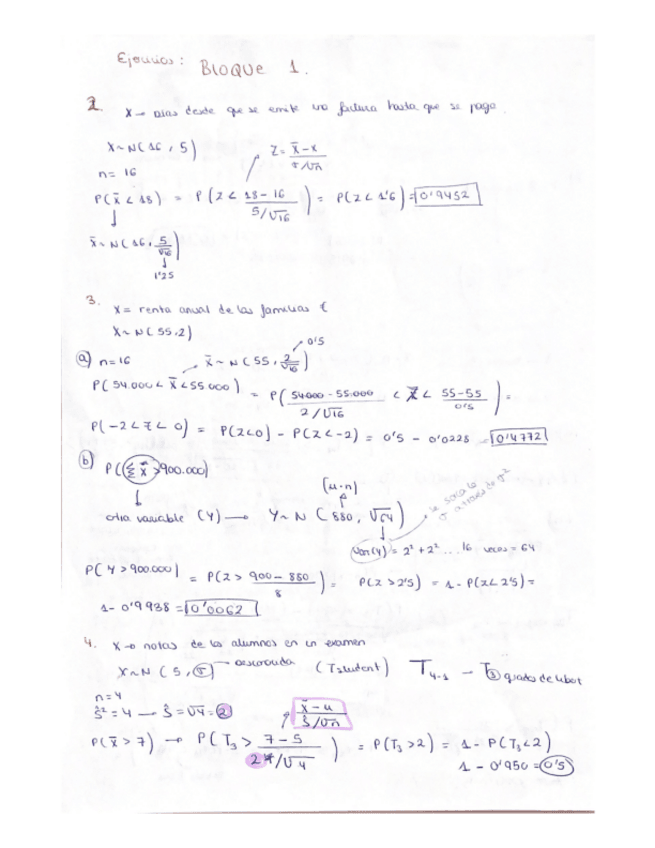 Ejercicios: BLOQUE 1.
2. X → días desde que se emite una factura hasta que se paga.
X ~ N(16, 5)
Z = x̄ - x / σ/√n
n = 16
P(x̄ < 18) = P(Z < 18 - 16 / 5/√16) = P(Z < 1'6) = 0'9452
x̄ ~ N(16, 5/√16)
1'25
3. X = renta anual de las familias €
X ~ N(55, 2)
a) n = 16 x̄ ~ N(55, 2/√16) 0'5
P(54.000 < x̄ < 55.000) = P(54.000 - 55.000 / 2/√16 < Z < 55-55 / 0'5) =
P(-2 < Z < 0) = P(Z<0) - P(Z < -2) = 0'5 - 0'0228 = 0'4772
b) P(Σx̄ > 900.000)
(μ·n)
otra variable (Y) → Y ~ N (880, √64)
Var(Y) = 2² + 2² ... 16 veces = 64
P(Y > 900.000) = P(Z > 900 - 880 / 8) = P(Z > 2'5) = 1 - P(Z < 2'5) =
1 - 0'9938 = 0'0062
4. X → notas de los alumnos en un examen
X ~ N(5, σ) desconocida (T student) T 4-1 - T 3 grados de libert
n = 4
ŝ² = 4 → ŝ = √4 = 2
x̄ - μ / ŝ/√n
P(x̄ > 7) → P(T₃ > 7 - 5 / 2/√4) = P(T₃ > 2) = 1 - P(T₃ < 2)
1 - 0'950 = 0'5